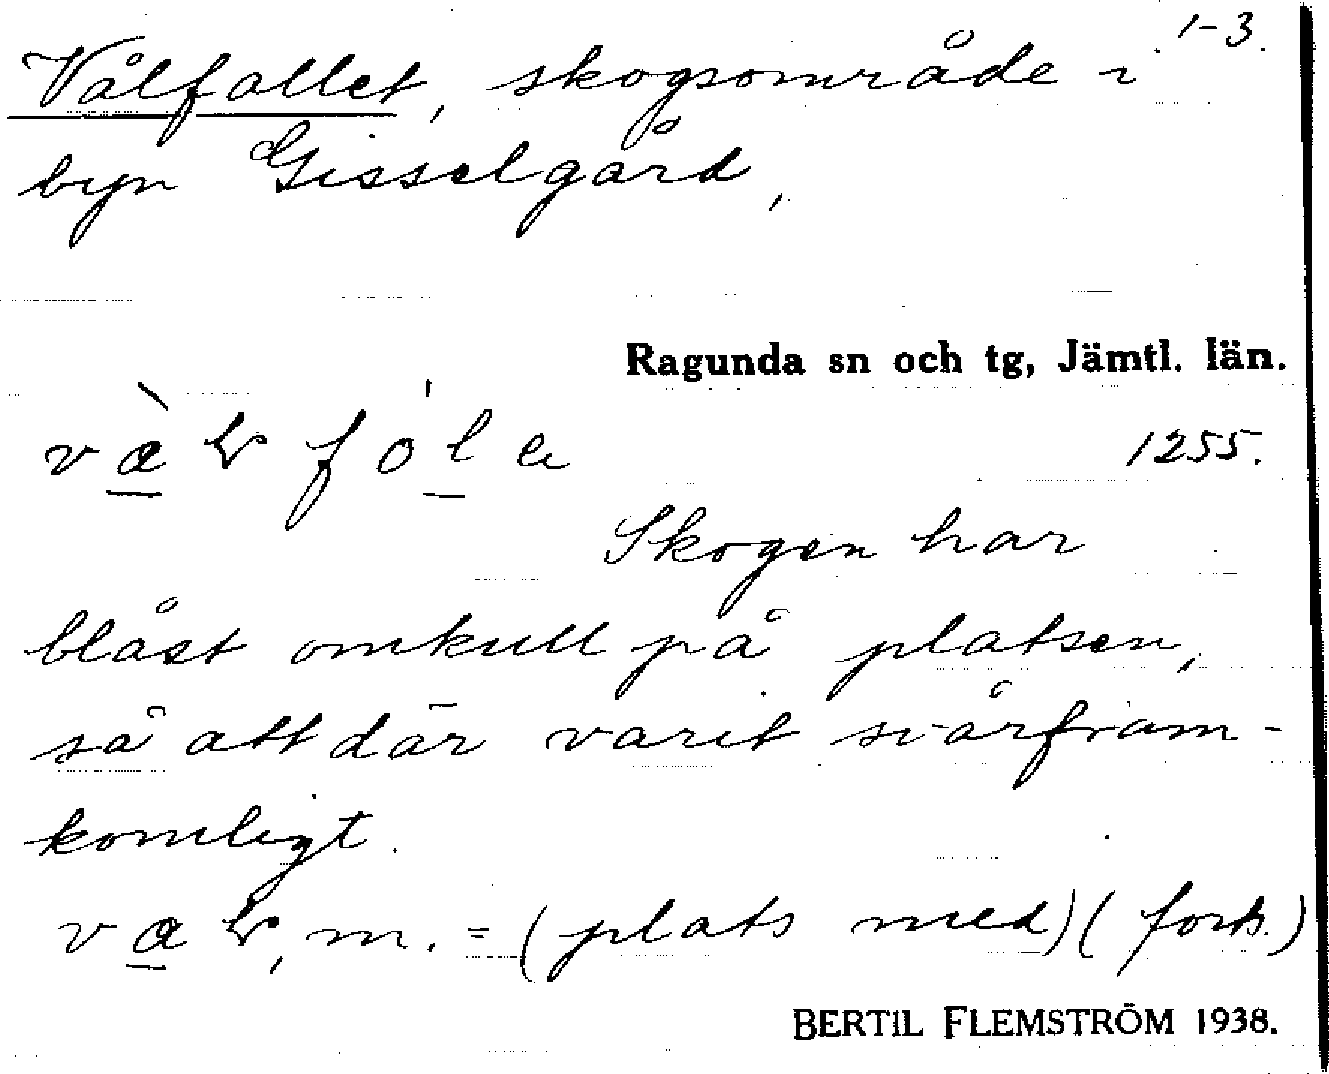 1-3.
Vålfallet, skogsområde i
byn Gisselgård,
Ragunda sn och tg, Jämtl. län.
1255.
Skogen har
blåst omkull på platsen,
så att där varit svårfram-
komligt.
m. = (plats med) (forts.)
BERTIL FLEMSTRÖM 1938.